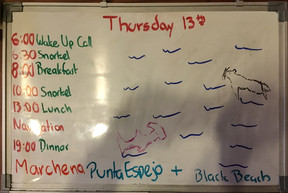 Thursday 13th
6:00 Wake Up Call
6:30 Snorkel
8:00 Breakfast
10:00 Snorkel
13:00 Lunch
Navigation
19:00 Dinnor
Marchena Punta Espejo + Black Beach